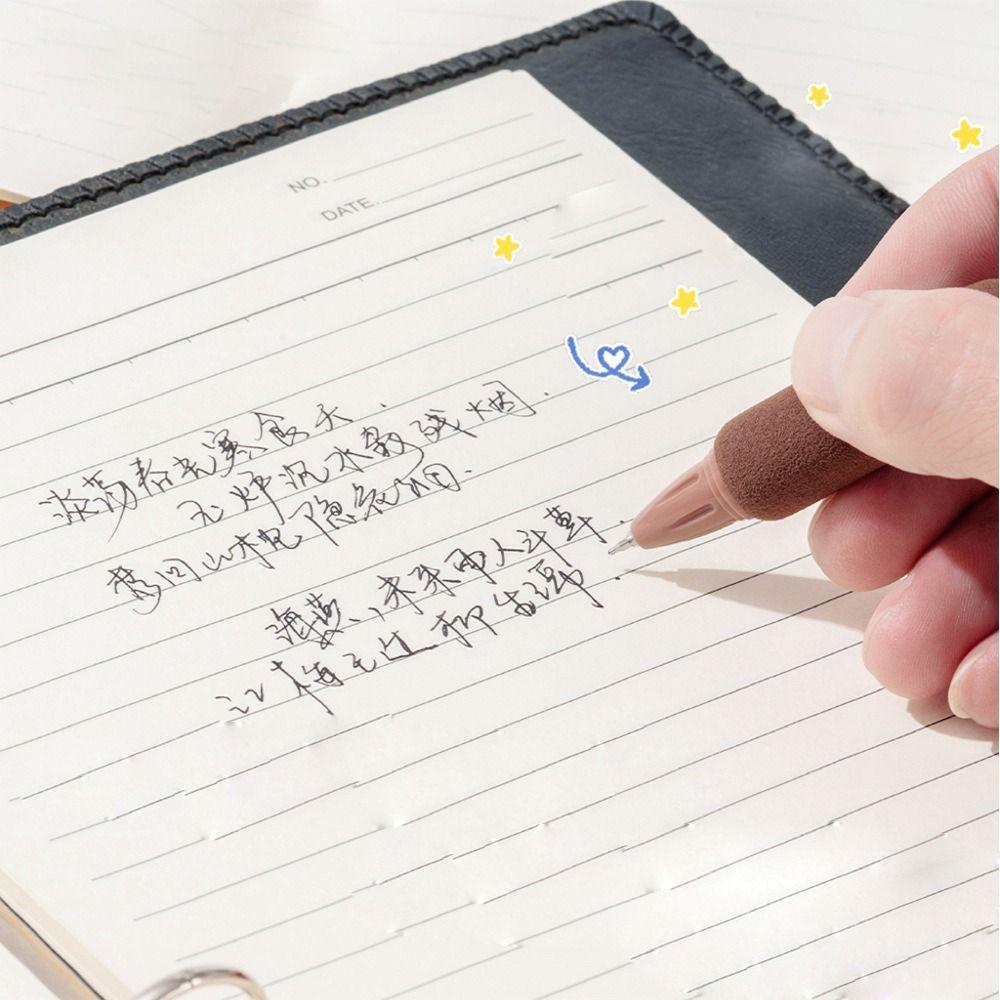 NO.
DATE.
淡荡春光寒食天.
玉炉沉水袅残烟.
梦回山枕隐花钿.
海燕、未来人斗草.
江梅已过柳生绵.